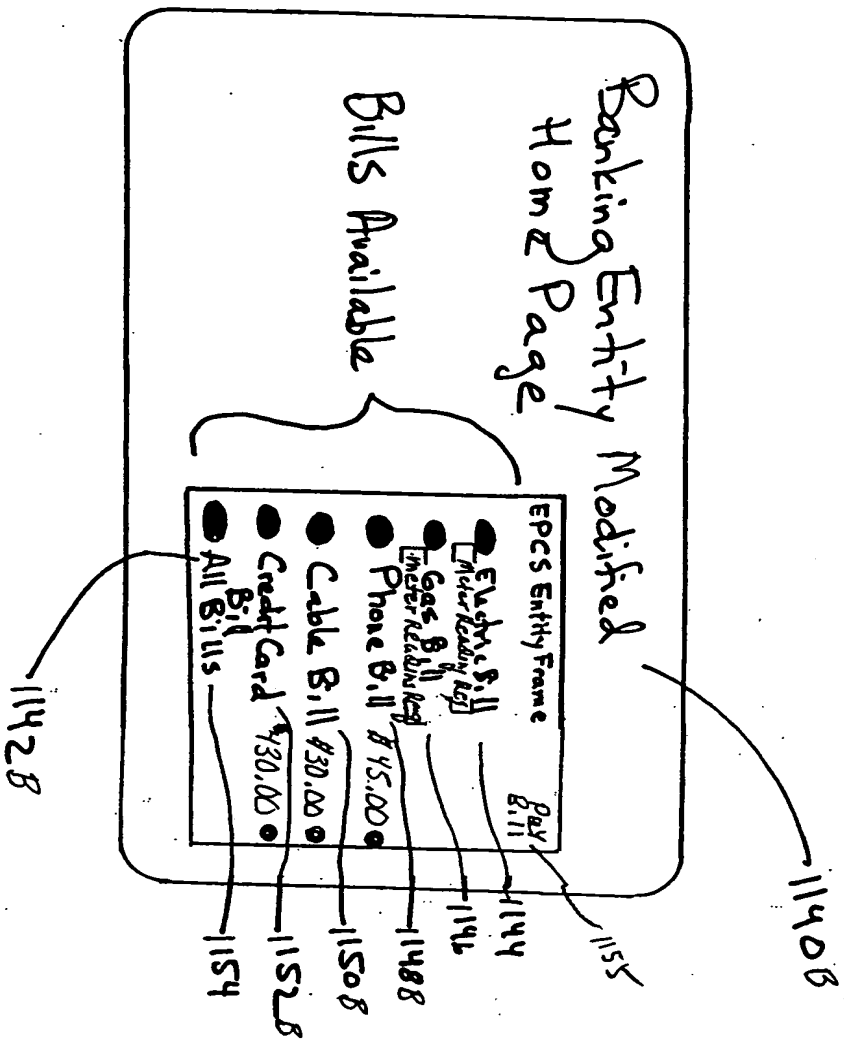 Banking Entity Modified
Home Page
Bills Available
EPCS Entity Frame
Pay
Bill
Electric Bill
Meter Reading Req
Gas Bill
Meter Reading Req
Phone Bill $45.00
Cable Bill $30.00
Credit Card $430.00
Bill
All Bills
1140B
1155
1144
1146
1148B
1150B
1152B
1154
1142B